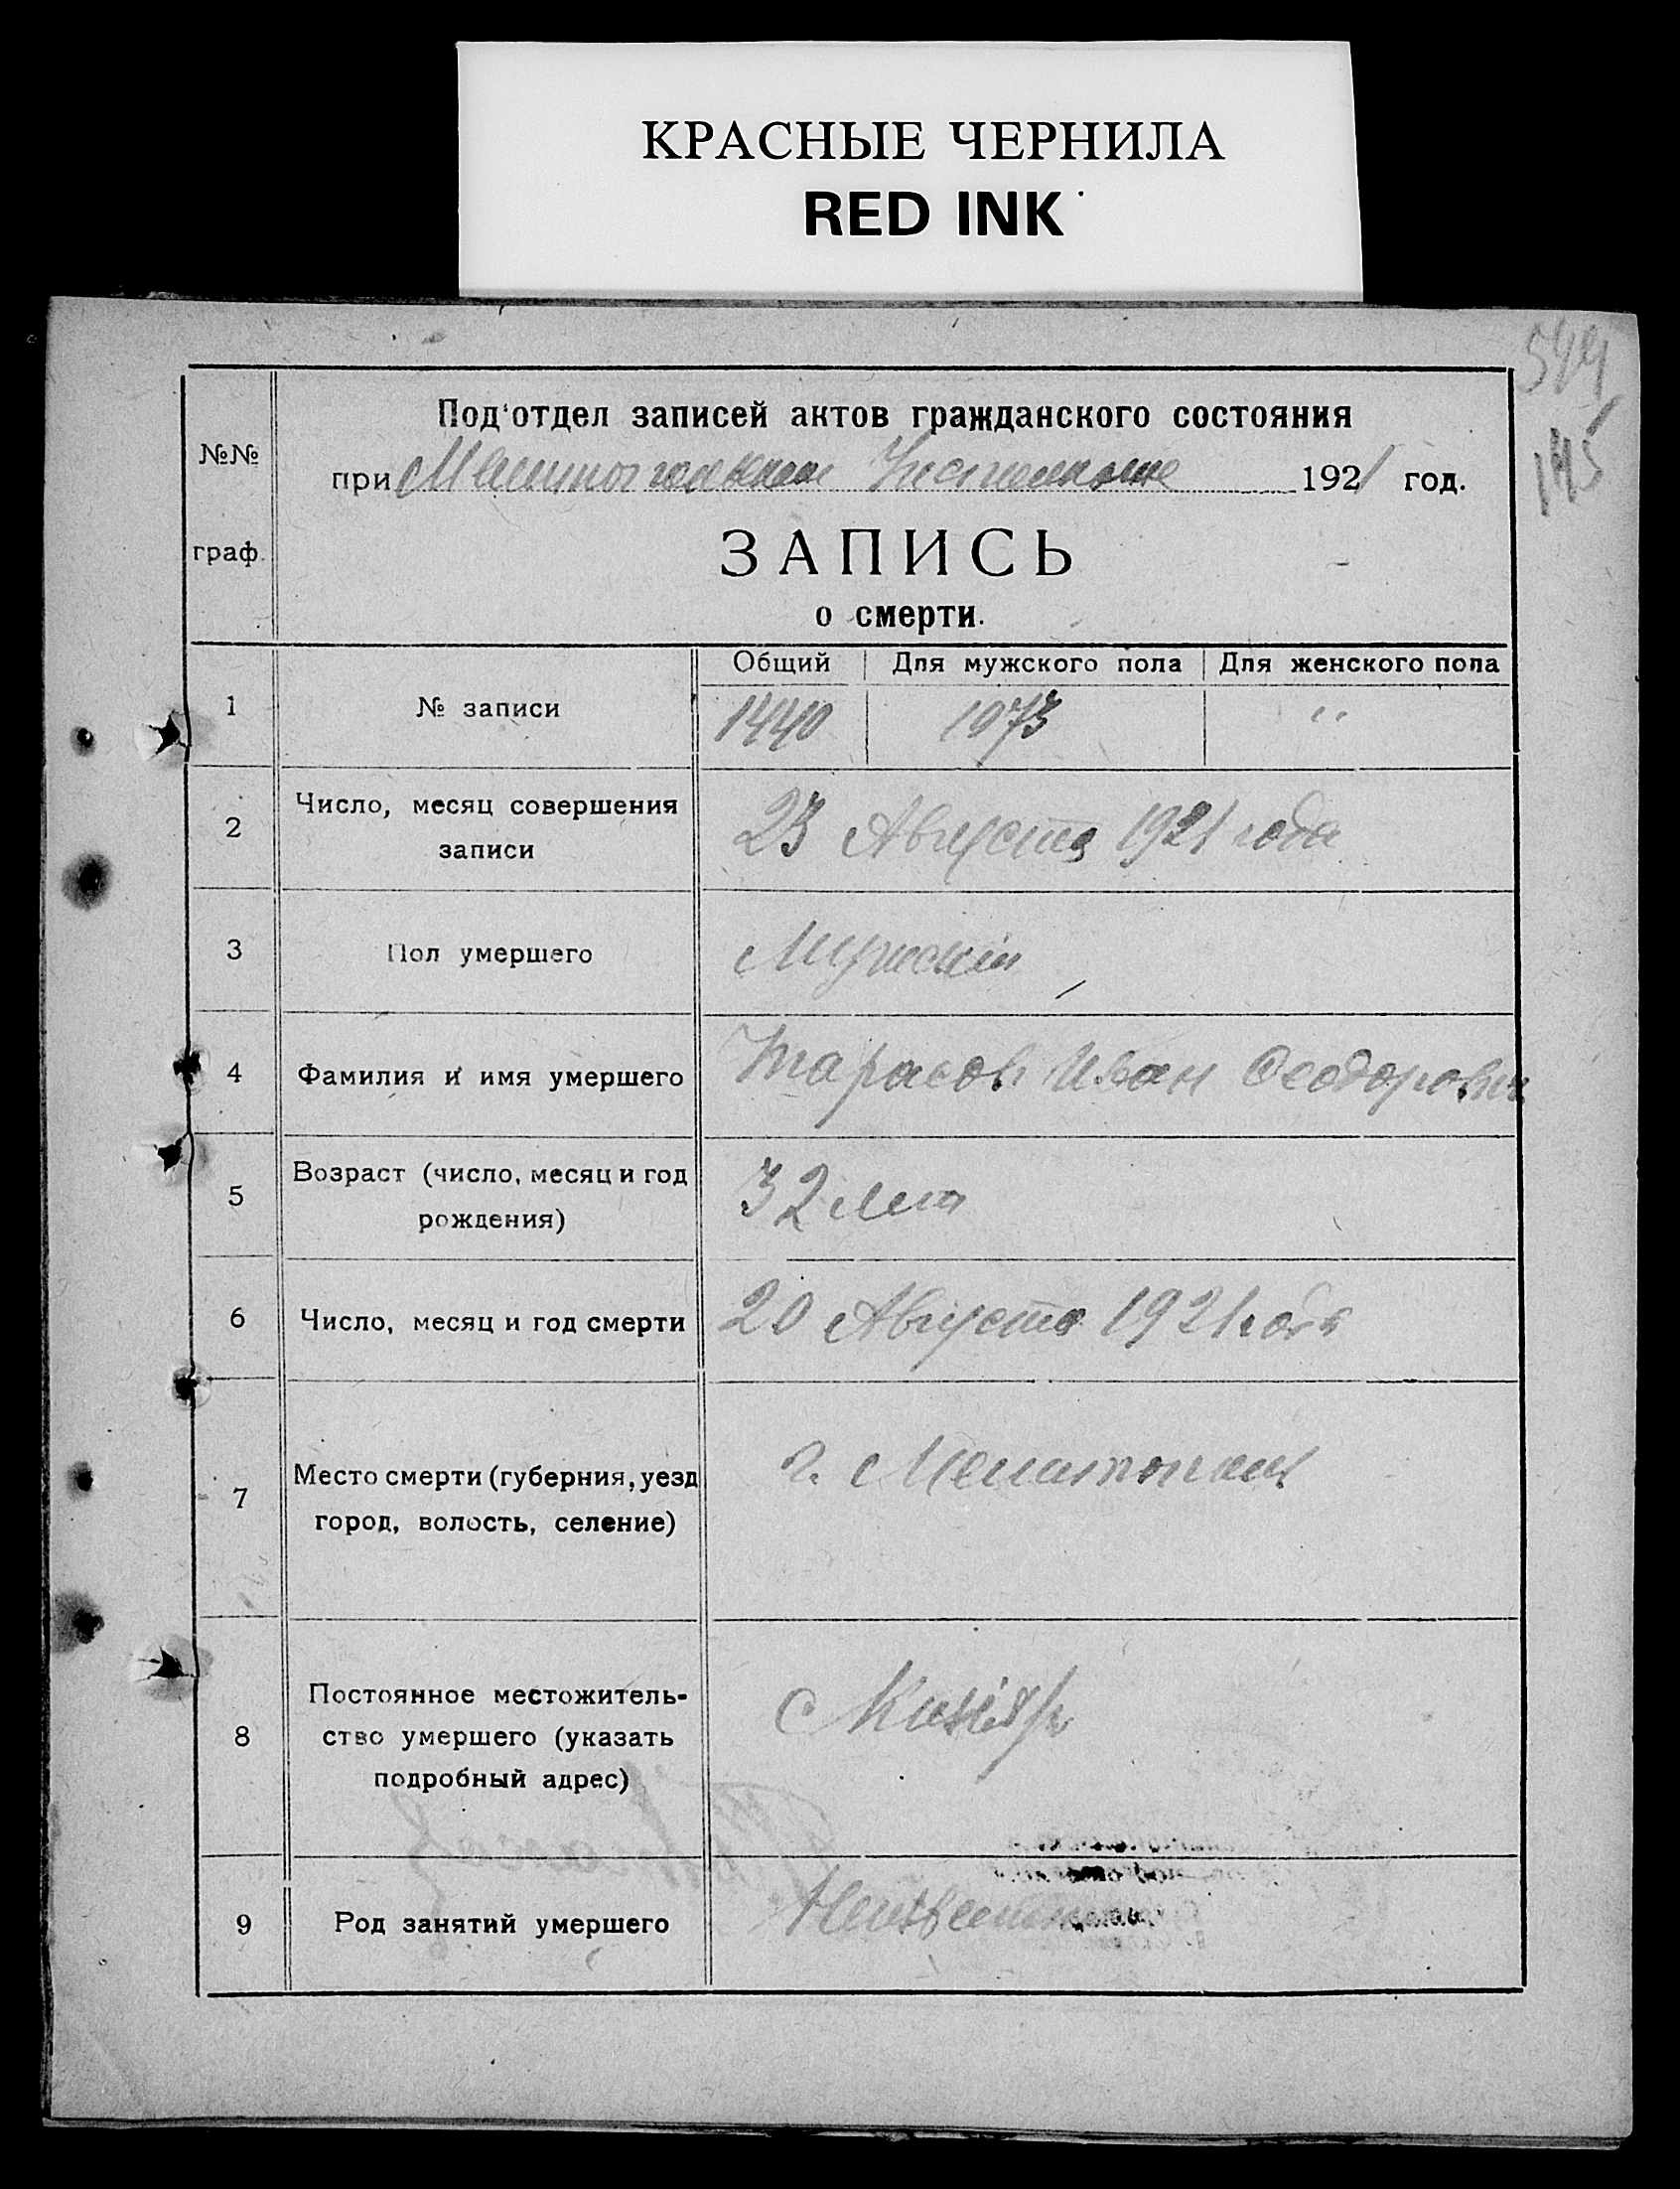 КРАСНЫЕ ЧЕРНИЛА
RED INK
549
145
Под'отдел записей актов гражданского состояния
№№
при Исполкоме 1921 год.
граф.
ЗАПИСЬ
о смерти.
Общий Для мужского пола Для женского пола
1 № записи 1440 1073 "
Число, месяц совершения
2 23 Августа 1921 года
записи
3 Пол умершего Мужскій
4 Фамилия и имя умершего Тарасов Иван Феодорович
Возраст (число, месяц и год
5 32 лет
рождения)
6 Число, месяц и год смерти 20 Августа 1921 года
г. Мелитополь
Место смерти (губерния, уезд
7
город, волость, селение)
Постоянное местожитель-
с Кизіяр
8 ство умершего (указать
подробный адрес)
9 Род занятий умершего